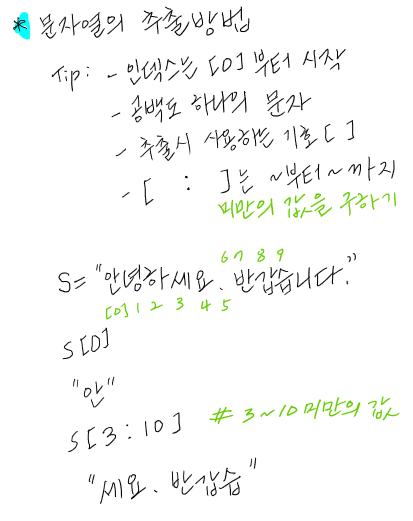 * 문자열의 추출방법
Tip: - 인덱스는 [0] 부터 시작
- 공백도 하나의 문자
- 추출시 사용하는 기호 [ ]
- [ : ]는 ~부터 ~까지
미만의 값을 구하기
6 7 8 9
S= "안녕하세요. 반갑습니다."
[0] 1 2 3 4 5
S[0]
"안"
S[3:10] # 3~10 미만의 값
"세요. 반갑습"